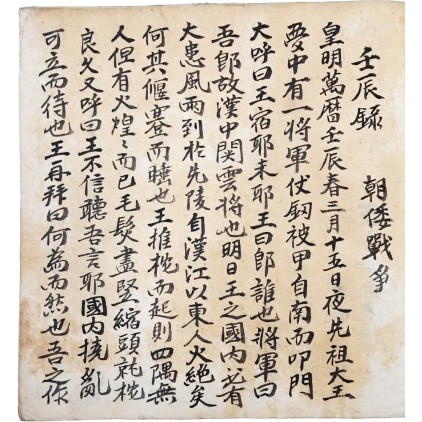 壬辰錄 朝倭戰爭
皇明萬暦壬辰春三月十五日夜先祖大王
夢中有一將軍仗釼被甲自南而叩門
大呼曰王宿耶未耶王曰郎誰也將軍曰
吾郎故漢中関雲將也明日王之國内必有
大患風雨到於先陵自漢江以東人火絶矣
何其偃蹇而睡也王推枕而起則四隅無
人但有火煌〻而已毛髮盡竪縮頭就枕
良久又呼曰王不信聽吾言耶國内擾亂
可立而待也王再拜曰何為而然也吾之作